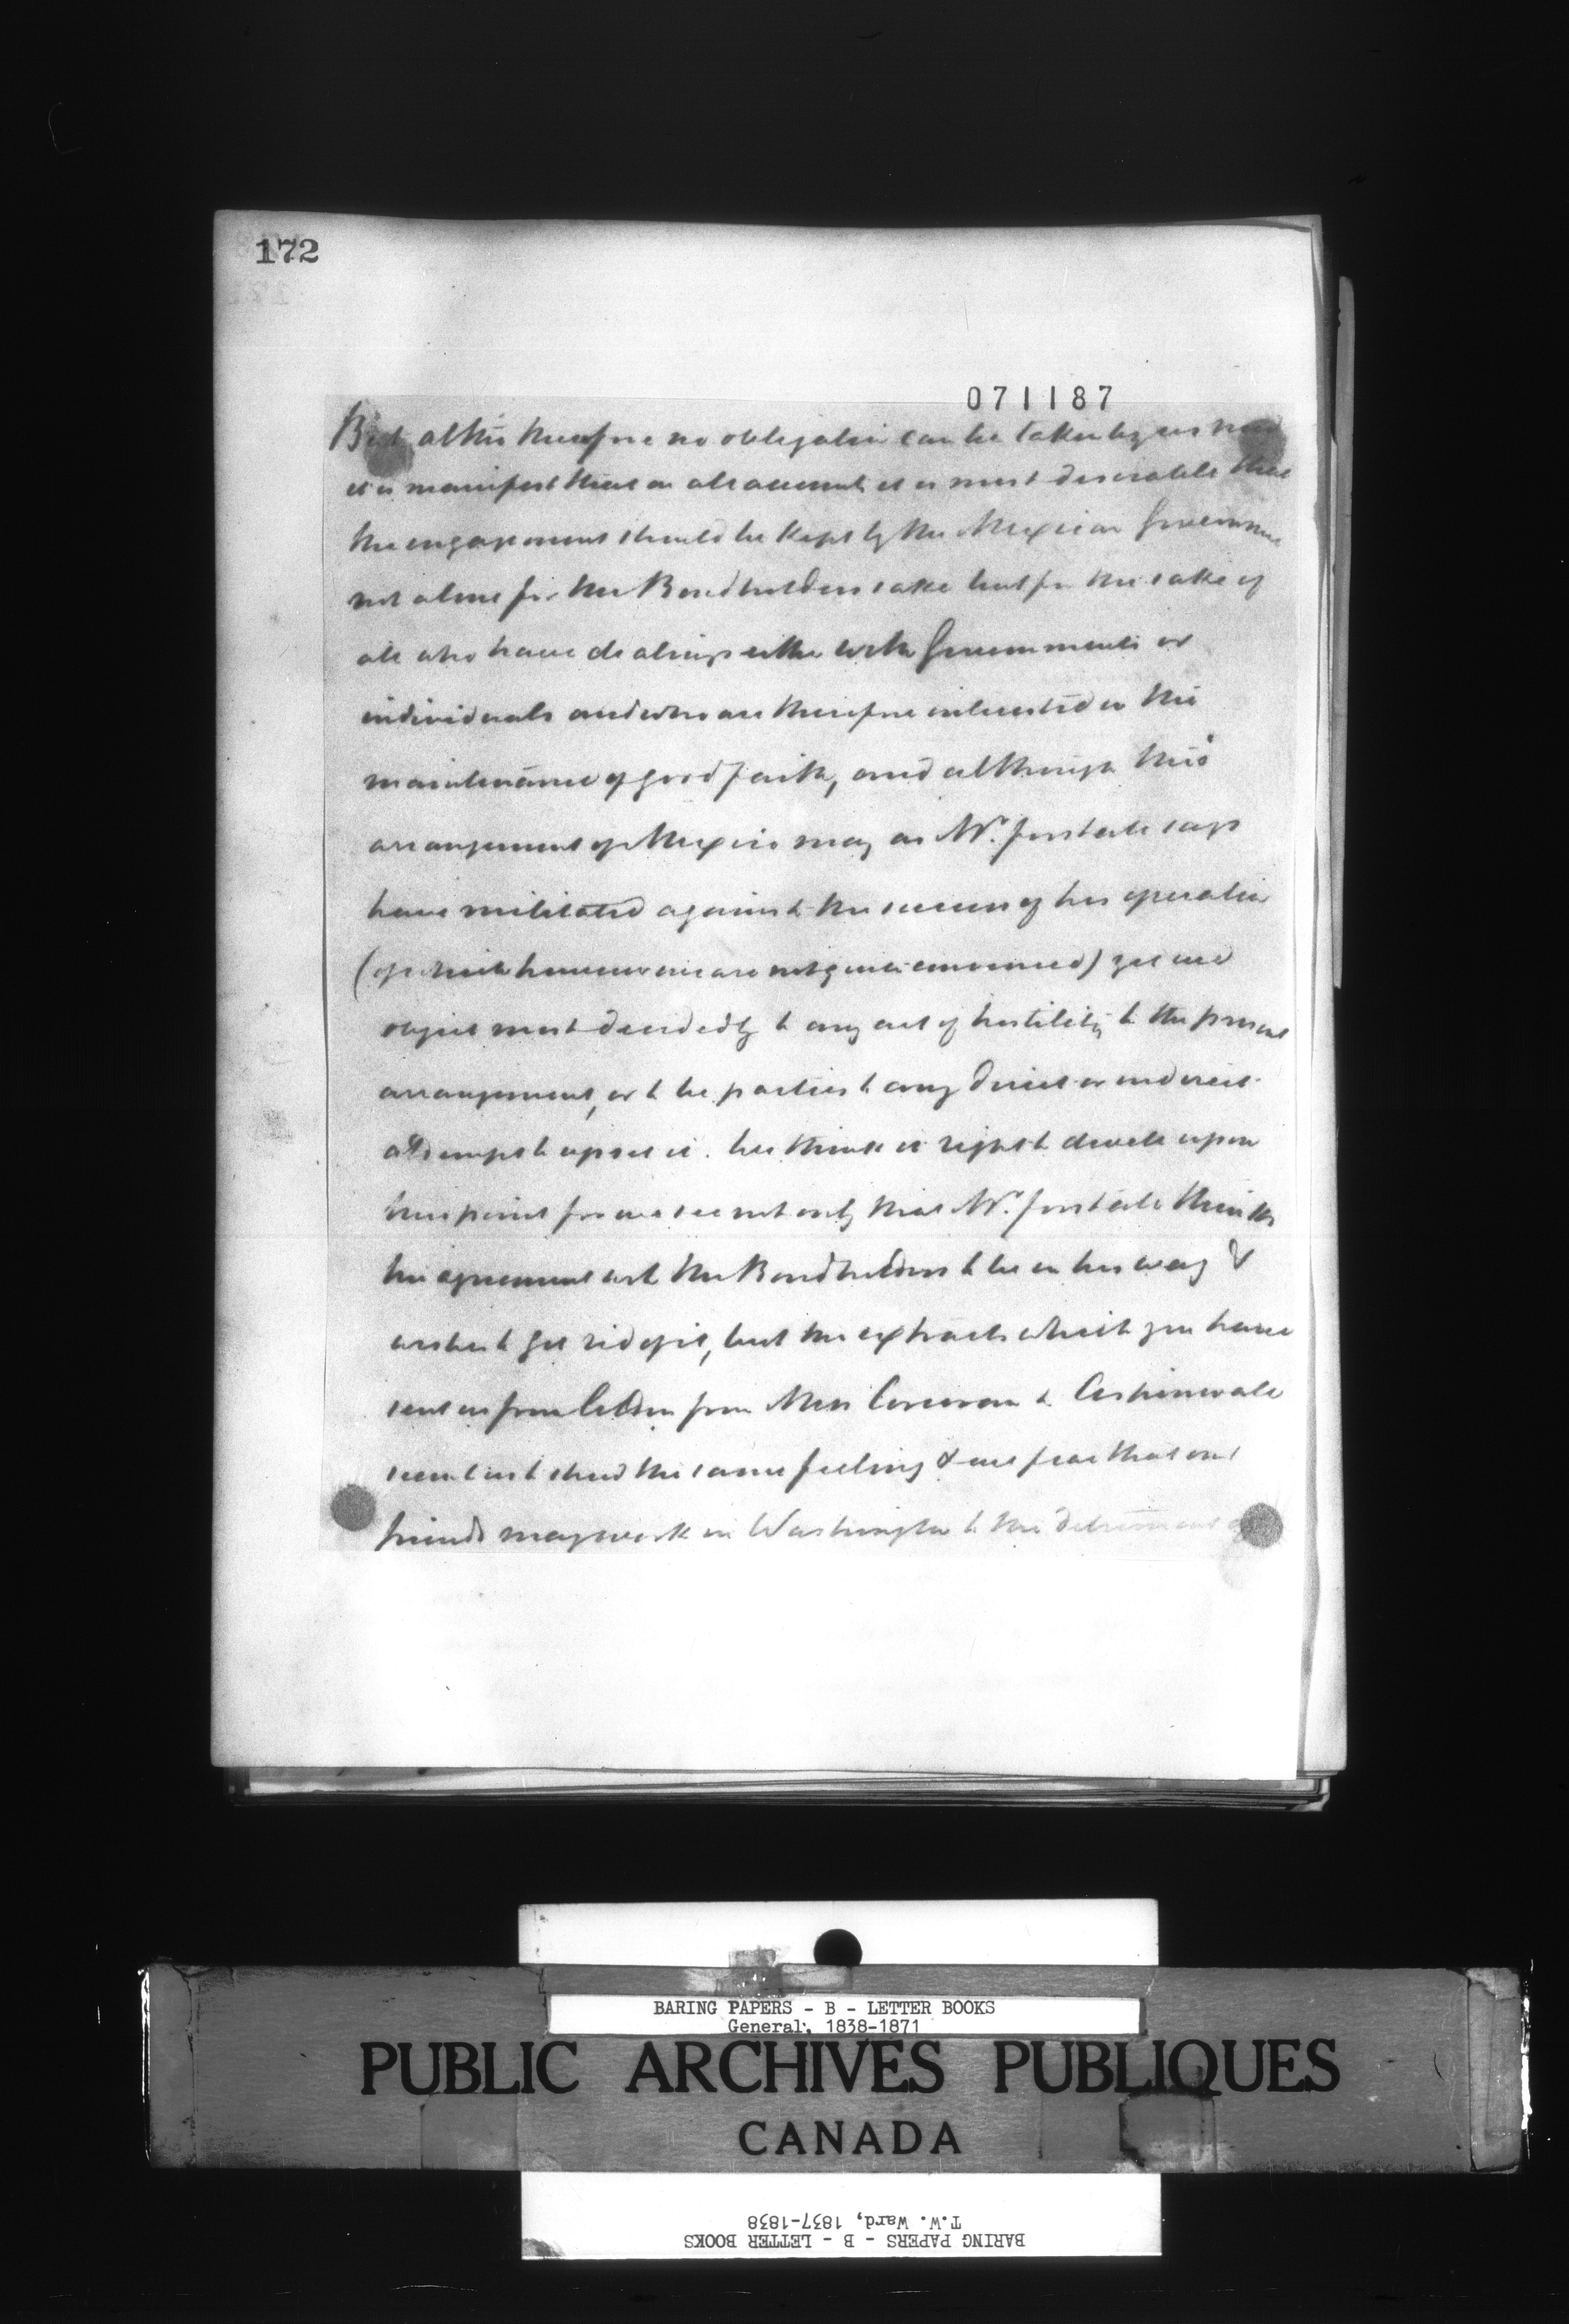 172
071187
But altho therefore no obligation can be taken by us now
it is manifest that on all accounts it is most desirable that
the engagement should be kept by the Mexican Governme
not alone for the Bondholders sake but for the sake of
all who have dealings either with Governments or
individuals and who are therefore interested in the
maintenance of good faith, and although this
arrangement of Mexico may as Mr. Forstall says
have militated against the success of his operation
(of which however we are not quite convinced) yet we
object most decidedly to any act of hostility to the present
arrangement, or to be parties to any direct or indirect
attempt to upset it. We think it right to dwell upon
this point for we see not only that Mr. Forstall thinks
the agreement with the Bondholders to be in his way &
wishes to get rid of it, but the extracts which you have
sent us from letters from Mess Corcoran to
seem to us to shew the same feeling & we fear that our
friends may work in Washington to the detriment of
BARING PAPERS - B - LETTER BOOKS
General, 1838-1871
PUBLIC ARCHIVES PUBLIQUES
CANADA
BARING PAPERS - B - LETTER BOOKS
T.W. Ward, 1837-1838